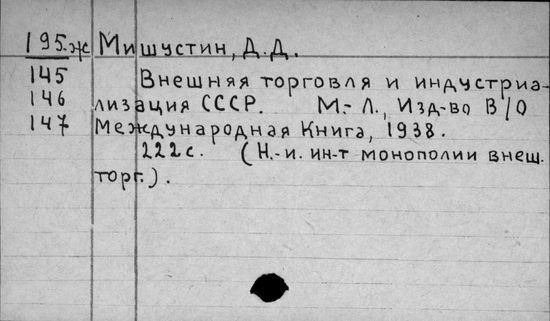 195.ж Мишустин, Д.Д.
145 Внешняя торговля и индустриа-
146 лизация СССР. М.-Л., Изд-во В/О
147 Международная Книга, 1938.
222 с. (Н.-и. ин-т монополии внеш.
торг.).